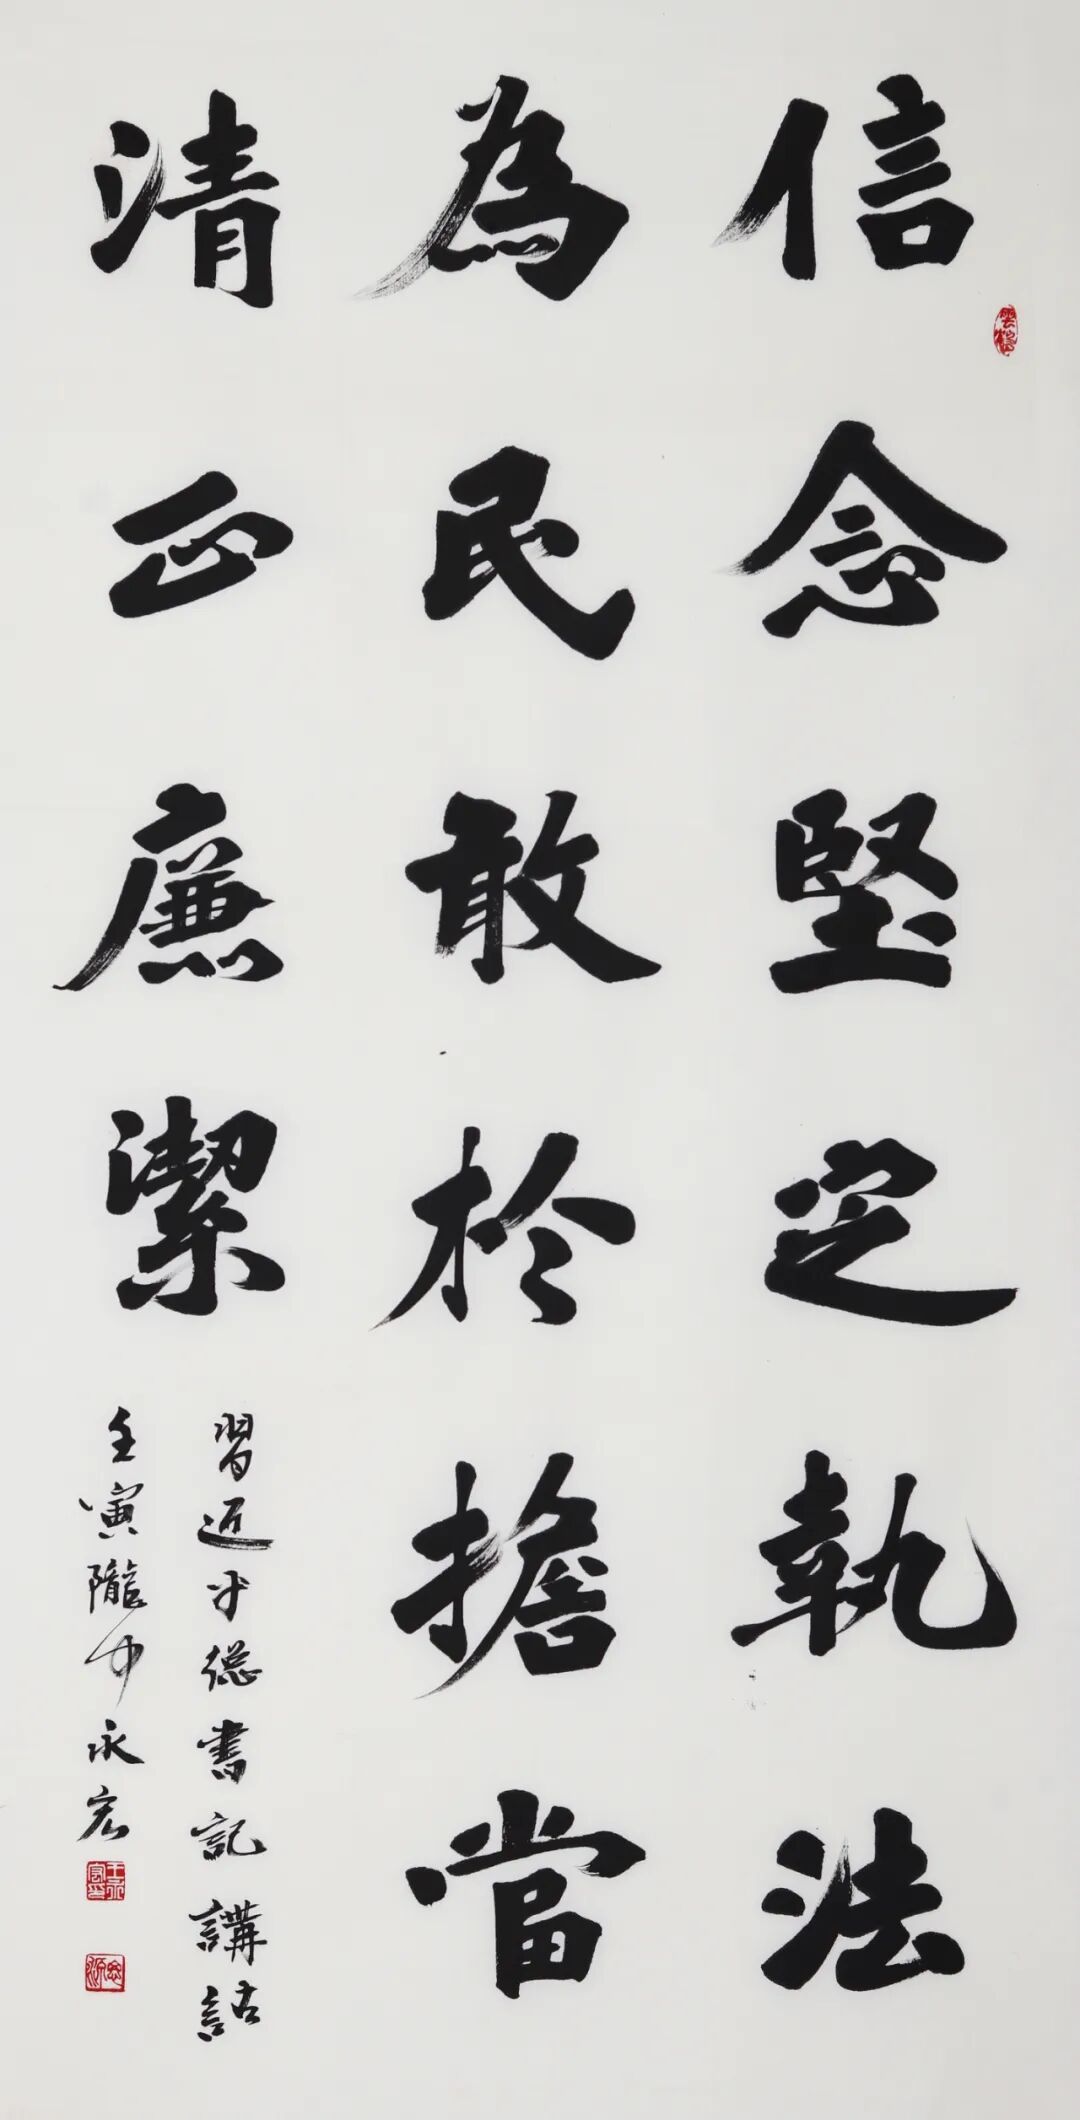 信念堅定執法
為民敢於擔當
清正廉潔
習近平總書記講話
壬寅隴中永宏